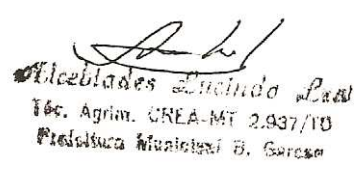 Alcebíades Lucindo Leal
Téc. Agrim. CREA-MT 2.937/TD
Prefeitura Municipal B. Garças